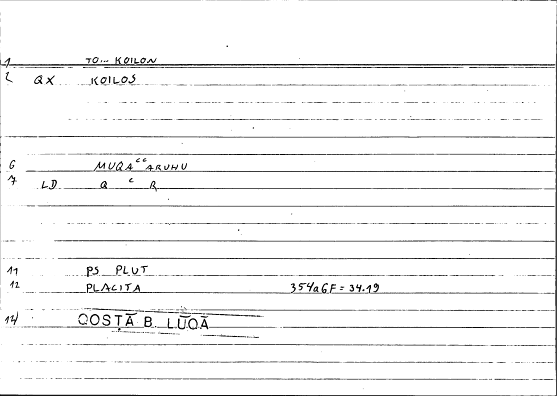 1 TO... KOILON
2 QX KOILOS
6 MUQAᶜᶜARUHU
7 LD Q ᶜ R
11 PS PLUT
12 PLACITA 354a6F = 34.19
14 QOSṬĀ B. LŪQĀ